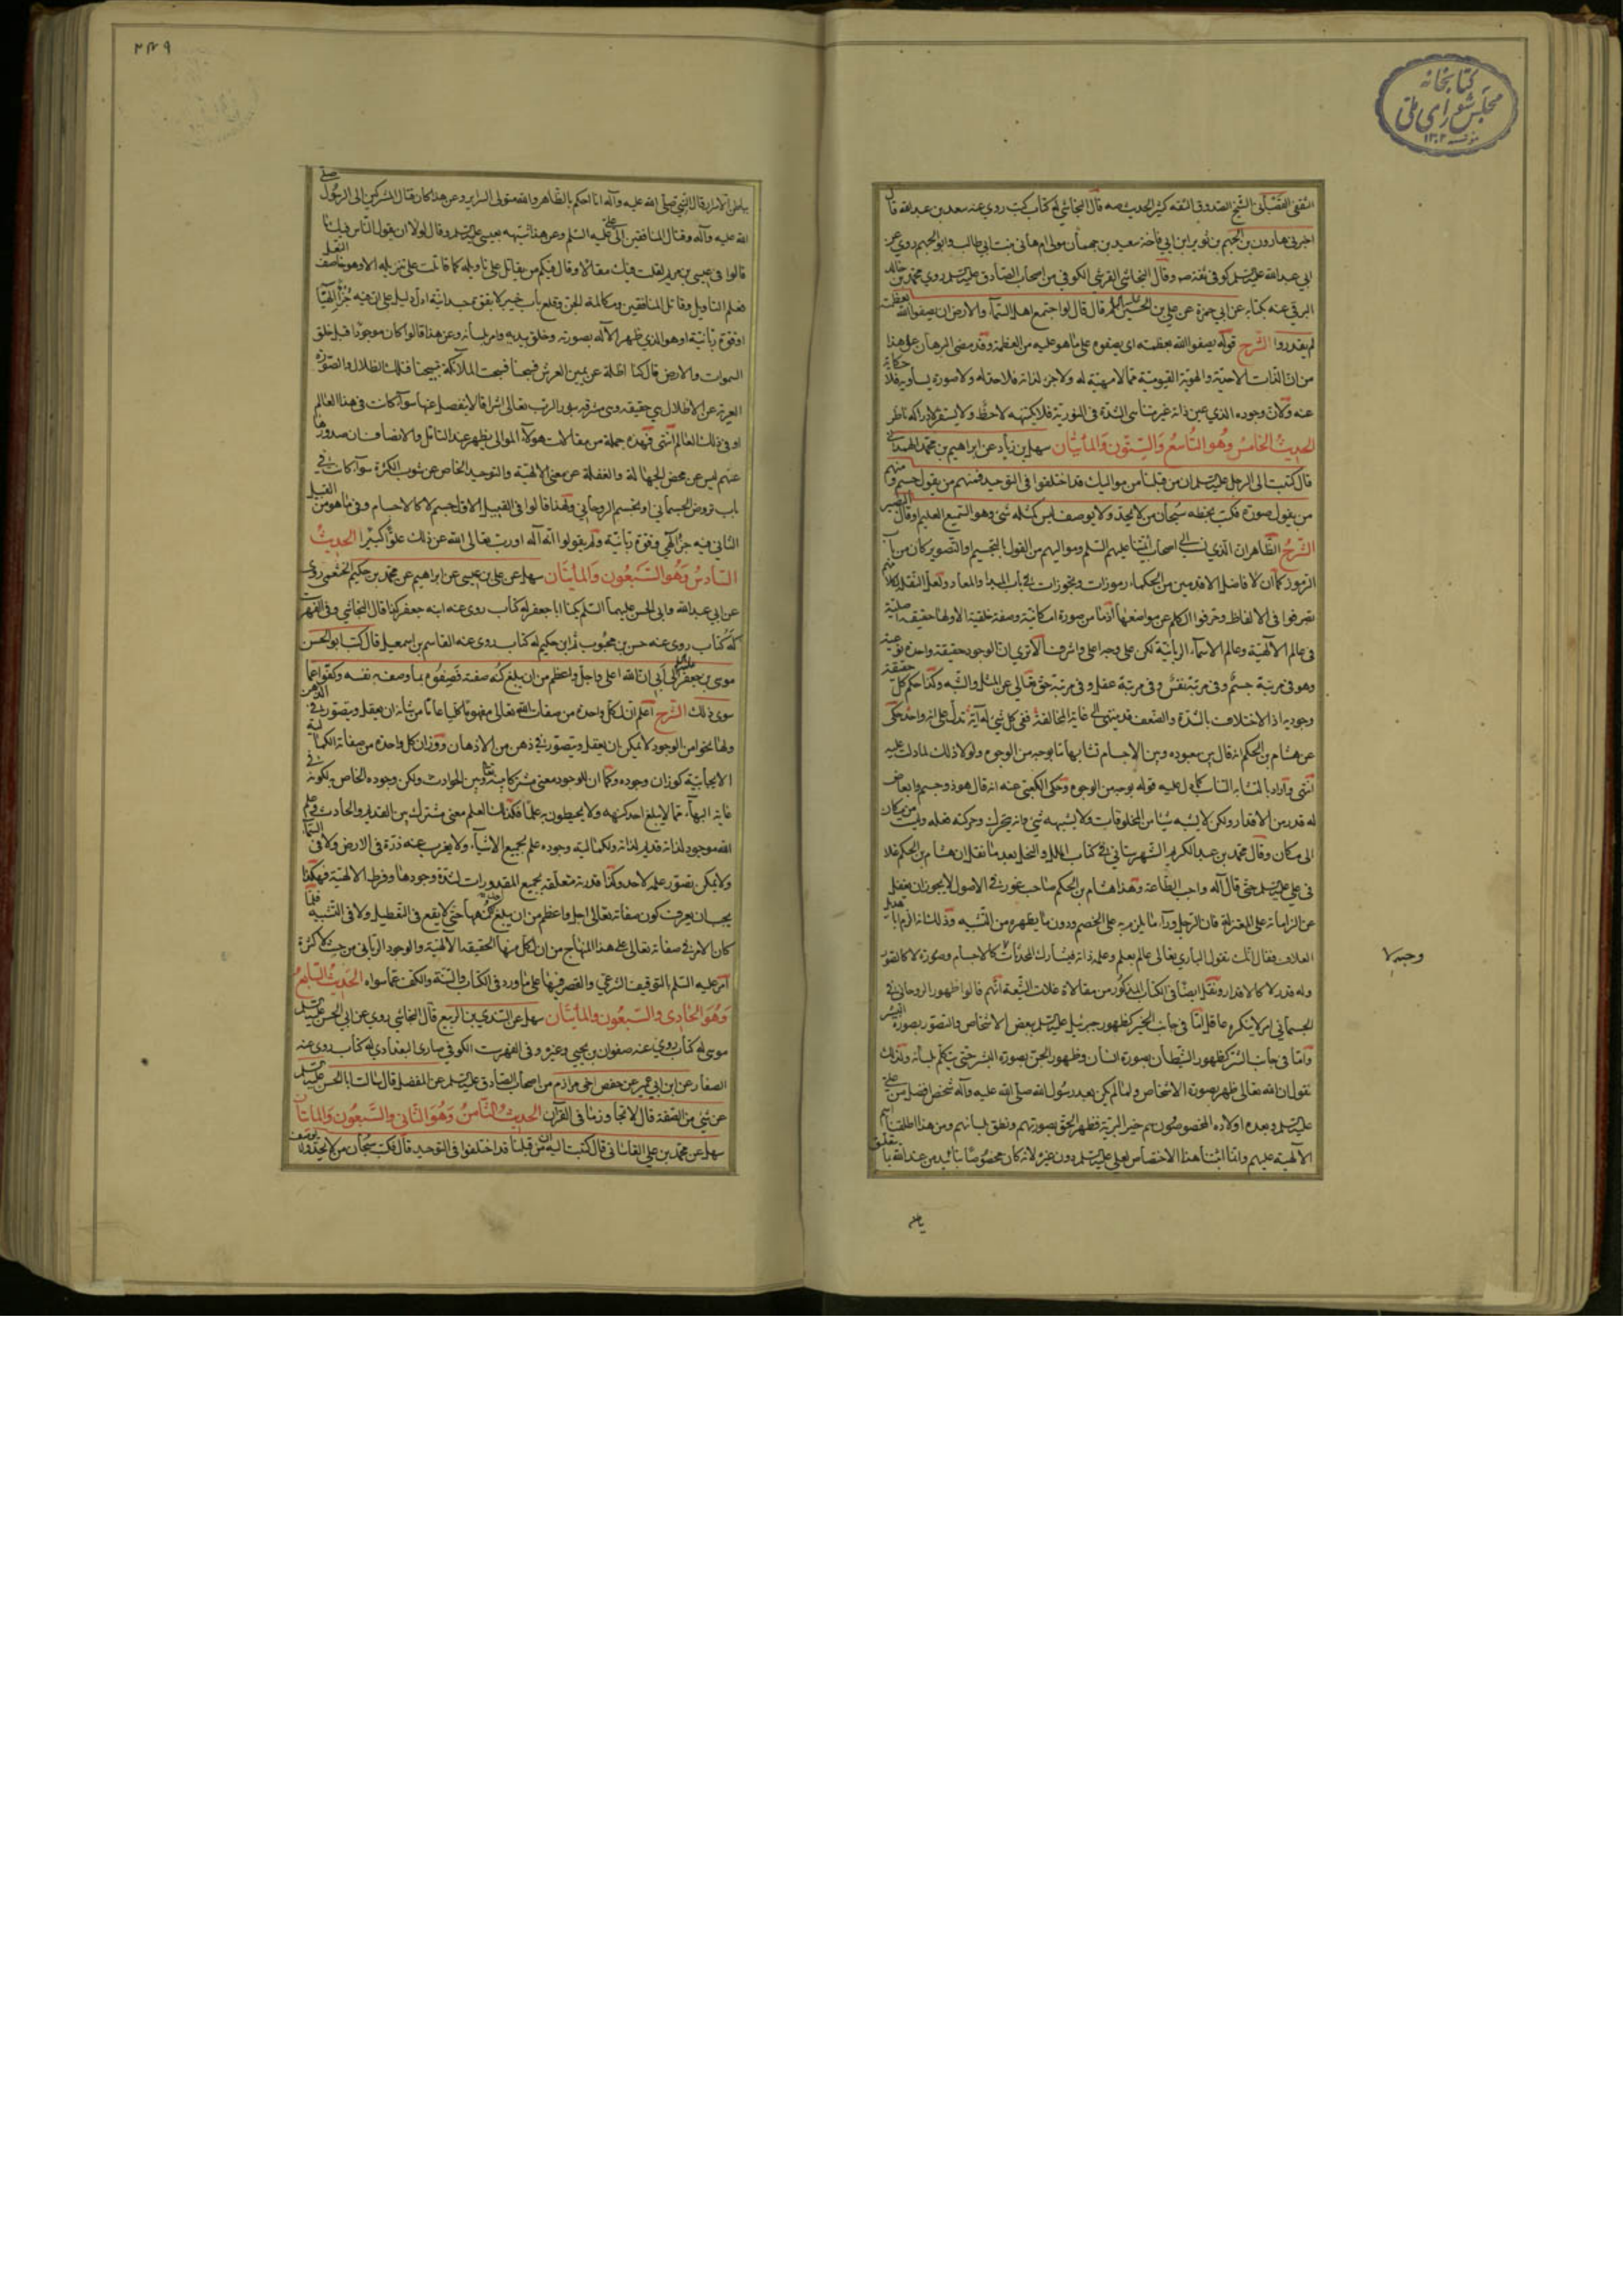 كتابخانه
مجلس شورای ملی
۲۴۹
الثقفی القصبانی الشیخ الصدوق الثقة كثیر الحدیث صه قال النجاشی له كتاب كتب روی عنه سعد بن عبد الله قال
اخبرنی هارون بن الجهم بن ثویر ابن ابی فاخته سعید بن جمهان مولی ام هانی بنت ابی طالب وابو الجهم روی عن
ابی عبد الله علیه السلم كوفی ثقة صه وقال النجاشی القرشی الكوفی من اصحاب الصادق علیه السلم روی محمد بن خالد
البرقی عنه كتابه عن ابی حمزة عن علی بن الحسین علیه السلم قال قال لو اجتمع اهل السماء والارض ان یصفوا الله بعظمته
لم یقدروا الشرح قوله یصفوا الله بعظمته ای یصفوه علی ما هو علیه من العظمة وقد مضی البرهان علی هذا
من ان الذات الاحدیة والهویة القیومیة مما لا مهیة له ولا جزء لذاته فلا حد له ولا صورة یساویه فلا حكایة
عنه ولان وجوده الذی عین ذاته غیر متناهی الشدة فی النوریة فلا یكتنهه لاحظ ولا یستقر لادراكه ناظر
الحدیث الخامس وهو التاسع والستون والمائتان سهل بن زیاد عن ابراهیم بن محمد الهمدانی
قال كتبت الی الرجل علیه السلم ان من قبلنا من موالیك قد اختلفوا فی التوحید فمنهم من یقول جسم ومنهم
من یقول صورة فكتب بخطه سبحان من لا یحد ولا یوصف لیس كمثله شیء وهو السمیع العلیم او قال البصیر
الشرح الظاهر ان الذی نسب الی اصحاب ائمتنا علیهم السلم وموالیهم من القول بالتجسیم والتصویر كان من باب
الرموز كما ان لافاضل الاقدمین من الحكماء رموزات وتجوزات فی باب المبدأ والمعاد ولعل النقلة لكلامهم
تصرفوا فی الالفاظ وحرفوا الكلم عن مواضعها اذ ما من صورة امكانیة وصفة خلقیة الا ولها حقیقة اصلیة
فی عالم الالهیة وعالم الاسماء الربانیة لكن علی وجه اعلی واشرف الا تری ان الوجود حقیقة واحدة نوعیة
وهو فی مرتبة جسم وفی مرتبة نفس وفی مرتبة عقل وفی مرتبة حق تعالی عن المثل والشبه وكذا حكم كل حقیقة
وجودیة اذ الاختلاف بالشدة والضعف قد ینتهی الی غایة المخالفة ففی كل شیء له آیة تدل علی انه واحد حكی
عن هشام بن الحكم انه قال بین معبوده وبین الاجسام تشابها ما بوجه من الوجوه ولولا ذلك لما دلت علیه
انتهی واراد بالمشابه التناسب كما دل علیه قوله بوجه من الوجوه وحكی الكعبی عنه انه قال هو ذو جسم وابعاض
له قدر من الاقدار ولكن لا یشبه شیئا من المخلوقات ولا یشبهه شیء وانه یتحرك وحركته فعله ولیست من مكان
الی مكان وقال محمد بن عبد الكریم الشهرستانی فی كتاب الملل والنحل بعد ما نقل ان هشام بن الحكم غلا
فی علی علیه السلم حتی قال آله واجب الطاعة وهذا هشام بن الحكم صاحب غور فی الاصول لا یجوز ان یغفل
عن الزاماته علی المعتزلة فان الرجل وراء ما یلزم به علی الخصم ودون ما یظهره من التشبیه وذلك انه الزم ابا هذیل
العلاف فقال انك تقول الباری تعالی عالم بعلم وعلمه ذاته فیشارك المحدثات كالاجسام وصورة لا كالصور
وله قدر لا كالاقدار ونقل ایضا فی الكتاب المذكور من مقالاة غلات الشیعة انهم قالوا ظهور الروحانی فی
الجسمانی امر لا ینكره عاقل اما فی جانب الخیر كظهور جبرئیل علیه السلم ببعض الاشخاص والتصور بصورة البشر
واما فی جانب الشر كظهور الشیطان بصورة انسان وظهور الجن بصورة البشر حتی یتكلم بلسانه ولذلك
نقول ان الله تعالی ظهر بصورة الاشخاص ولما لم یكن بعد رسول الله صلی الله علیه وآله شخص افضل من علی
علیه السلم وبعده اولاده المخصوصون هم خیر البریة فظهر الحق بصورتهم ونطق بلسانهم ومن هذا اطلقنا اسم
الالهیة علیهم وانما اثبتنا هذا الاختصاص لعلی علیه السلم دون غیره لانه كان مخصوصا بتائید من عند الله بما یتعلق
بباطن الاسرار قال النبی صلی الله علیه وآله انا احكم بالظاهر والله متولی السرایر وعن هذا كان قتال المشركین الی الرسول صلی
الله علیه وآله وقتال المنافقین الی علی علیه السلم وعن هذا شبهه بعیسی علیه السلم وقال لولا ان یقول الناس فیك ما
قالوا فی عیسی بن مریم لقلت فیك مقالا وقال فیكم من یقاتل علی تاویله كما قاتلت علی تنزیله الا وهو خاصف النعل
فعلم التاویل وقاتل المنافقین ومكالمة الجن وقلع باب خیبر لا بقوة جسدانیة ادل دلیل علی ان فیه جزءا الهیا
وقوة ربانیة او هو الذی ظهر الاله بصورته وخلق بیدیه وامر بلسانه وعن هذا قالوا كان موجودا قبل خلق
السموات والارض قال كنا اظلة عن یمین العرش فسبحنا فسبحت الملائكة بتسبیحنا فتلك الظلال والصور
العریة عن الاظلال هی حقیقة وهی مشرقة بنور الرب تعالی اشراقا لا ینفصل عنها سواء كانت فی هذا العالم
او فی ذلك العالم انتهی فهذه جملة من مقالات هؤلاء الموالی یظهر عند التامل والانصاف ان صدورها
عنهم لیس عن محض الجهالة والغفلة عن معنی الالهیة والتوحید الخاص عن شوب الكثرة سواء كانت فی
باب تروض الجسمانی او تجسیم الروحانی ولهذا قالوا فی القبیل الاول جسم لا كالاجسام وفی ما هو من القبیل
الثانی فیه جزء الهی وقوة ربانیة ولم یقولوا انه آله او رب تعالی الله عن ذلك علوا كبیرا الحدیث
السادس وهو السبعون والمائتان سهل عن علی بن عیسی عن ابراهیم عن محمد بن حكیم الخثعمی روی
عن ابی عبد الله وابی الحسن علیهما السلم یكنی ابا جعفر له كتاب روی عنه ابنه جعفر كذا قال النجاشی وفی الفهرست
له كتاب روی عنه حسن بن محبوب لابن حكیم له كتاب روی عنه القاسم بن اسمعیل قال كتب ابو الحسن
موسی بن جعفر علیه السلم الی ابی ان الله اعلی واجل واعظم من ان یبلغ كنه صفته فصفوه بما وصف به نفسه وكفوا عما
سوی ذلك الشرح اعلم ان لكل واحدة من صفات الله تعالی مفهوما كلیا عاما من شانه ان یعقل ویتصور فی الذهن
ولها نحو من الوجود لا یمكن ان یعقل ویتصور فی ذهن من الاذهان ووزان كل واحدة من صفاته الكمالیة
الایجابیة كوزان وجوده وكما ان للوجود معنی مشتركا بینه وبین الحوادث ولكن وجوده الخاص به لكونه فی
غایة البهاء مما لا یبلغ احد كنهه ولا یحیطون به علما فكذلك العلم معنی مشترك بین القدیم والحادث وعلم
الله موجود لذاته قدیم لذاته ولكمالیة وجوده علم بجمیع الاشیاء ولا یعزب عنه ذرة فی الارض ولا فی السماء
ولا یمكن تصور علمه لاحد وكذا قدرته متعلقة بجمیع المقدورات لشدة وجودها وفرط الالهیة فهكذا
یجب ان یعرف كون صفاته تعالی اجل واعظم من ان یبلغ احد كنهها حتی لا یقع فی التعطیل ولا فی التشبیه فلما
كان الامر فی صفاته تعالی علی هذا المنهاج من ان لكل منها الحقیقة الالهیة والوجود الربانی من حیث لا كثرة
امر علیه السلم بالتوقیف الشرعی والقصر فیها علی ما ورد فی الكتاب والسنة والكف عما سواه الحدیث السابع
وهو الحادی والسبعون والمائتان سهل عن السندی بن الربیع قال النجاشی روی عن ابی الحسن علیه السلم
موسی له كتاب روی عنه صفوان بن یحیی وغیره وفی الفهرست الكوفی صاری البغدادی له كتاب روی عنه
الصفار عن ابن ابی عمیر عن حفص اخی مرازم من اصحاب الصادق علیه السلم عن المفضل قال سالت ابا الحسن علیه السلم
عن شیء من الصفة قال لا تجاوز ما فی القرآن الحدیث الثامن وهو الثانی والسبعون والمائتان
سهل عن محمد بن علی القاسانی قال كتبت الیه ان من قبلنا قد اختلفوا فی التوحید قال فكتب سبحان من لا یحد ولا یوصف